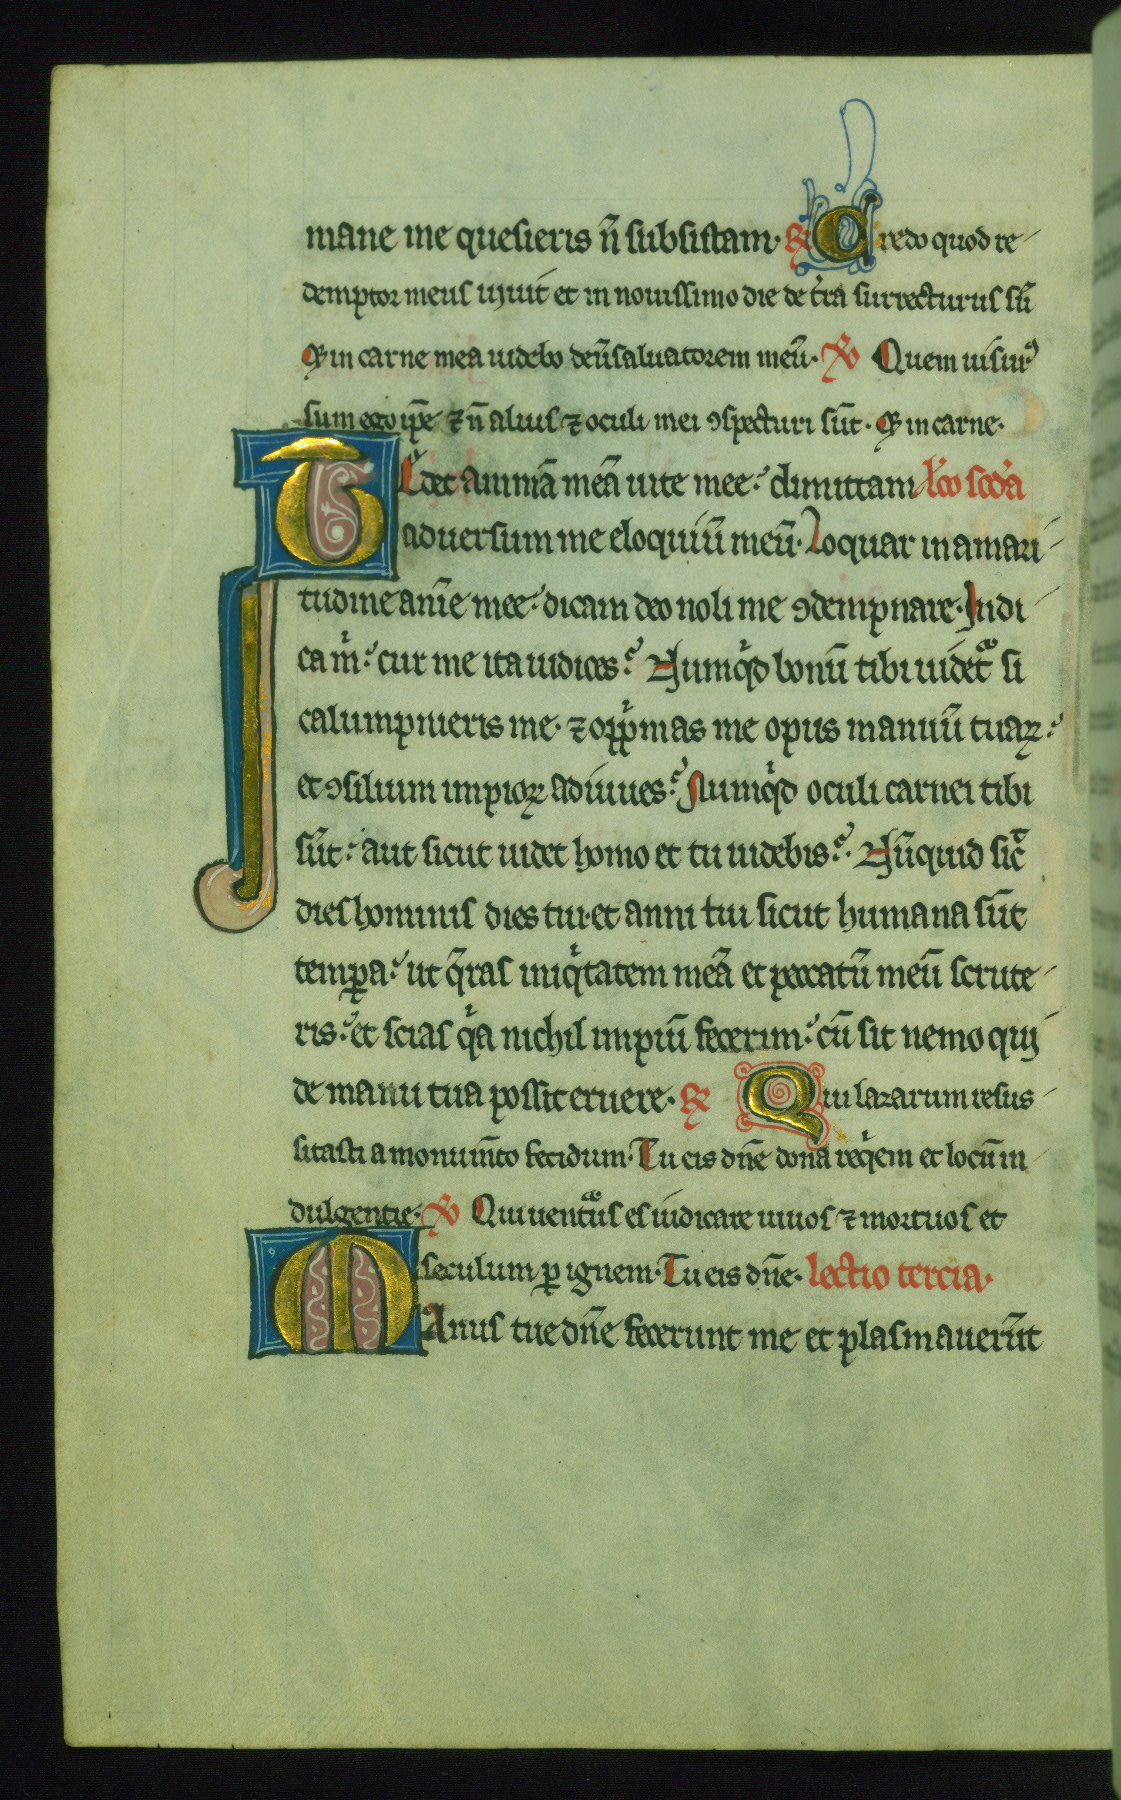 mane me quesieris n̄ subsistam· ℟ Credo quod re-
demptor meus uiuit et in nouissimo die de t̓ra surrecturus sū
Et in carne mea uidebo deū saluatorem meū· ℣ Quem uisurꝰ
sum ego ip̄e ⁊ n̄ alius ⁊ oculi mei ꝯspecturi sūt· Et in carne·
Tedet animā meā uite mee: dimittam l̄co sc̄da
aduersum me eloquiū meū· Loquar in amari-
tudine anīe mee: dicam deo noli me ꝯdempnare· Indi-
ca m̓: cur me ita iudices? Numqͥd bonū tibi uidet᷑ si
calumpnieris me· ⁊ opp̓mas me opus manuū tuaꝝ:
et ꝯsilium impioꝝ adiuues? Numqͥd oculi carnei tibi
sūt: aut sicut uidet homo et tu uidebis? Nūquid sic̄
dies hominis dies tui· et anni tui sicut humana sūt
temꝑa: ut q̄ras iniqͥtatem meā et peccatū meū scrute-
ris: et scias qͥa nichil impiū fecerim: cū sit nemo qui
de manu tua possit eruere· ℟ Qui lazarum resus-
sitasti a monum̄to fetidum· Tu eis dn̄e dona reqͥem et locū in-
dulgentie· ℣ Qui uentᷓus es iudicare uiuos ⁊ mortuos et
seculum ꝑ ignem· Tu eis dn̄e· lectio tercia·
Manus tue dn̄e fecerunt me et plasmauerūt